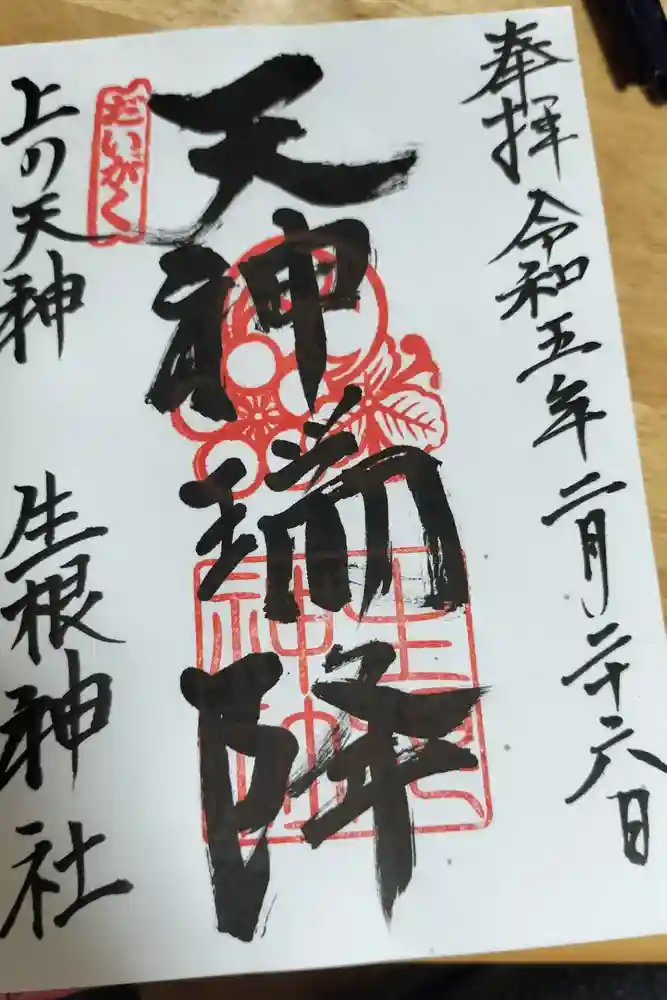 奉拝 令和五年二月二十六日
天神瑞降
だいがく
上の天神 生根神社